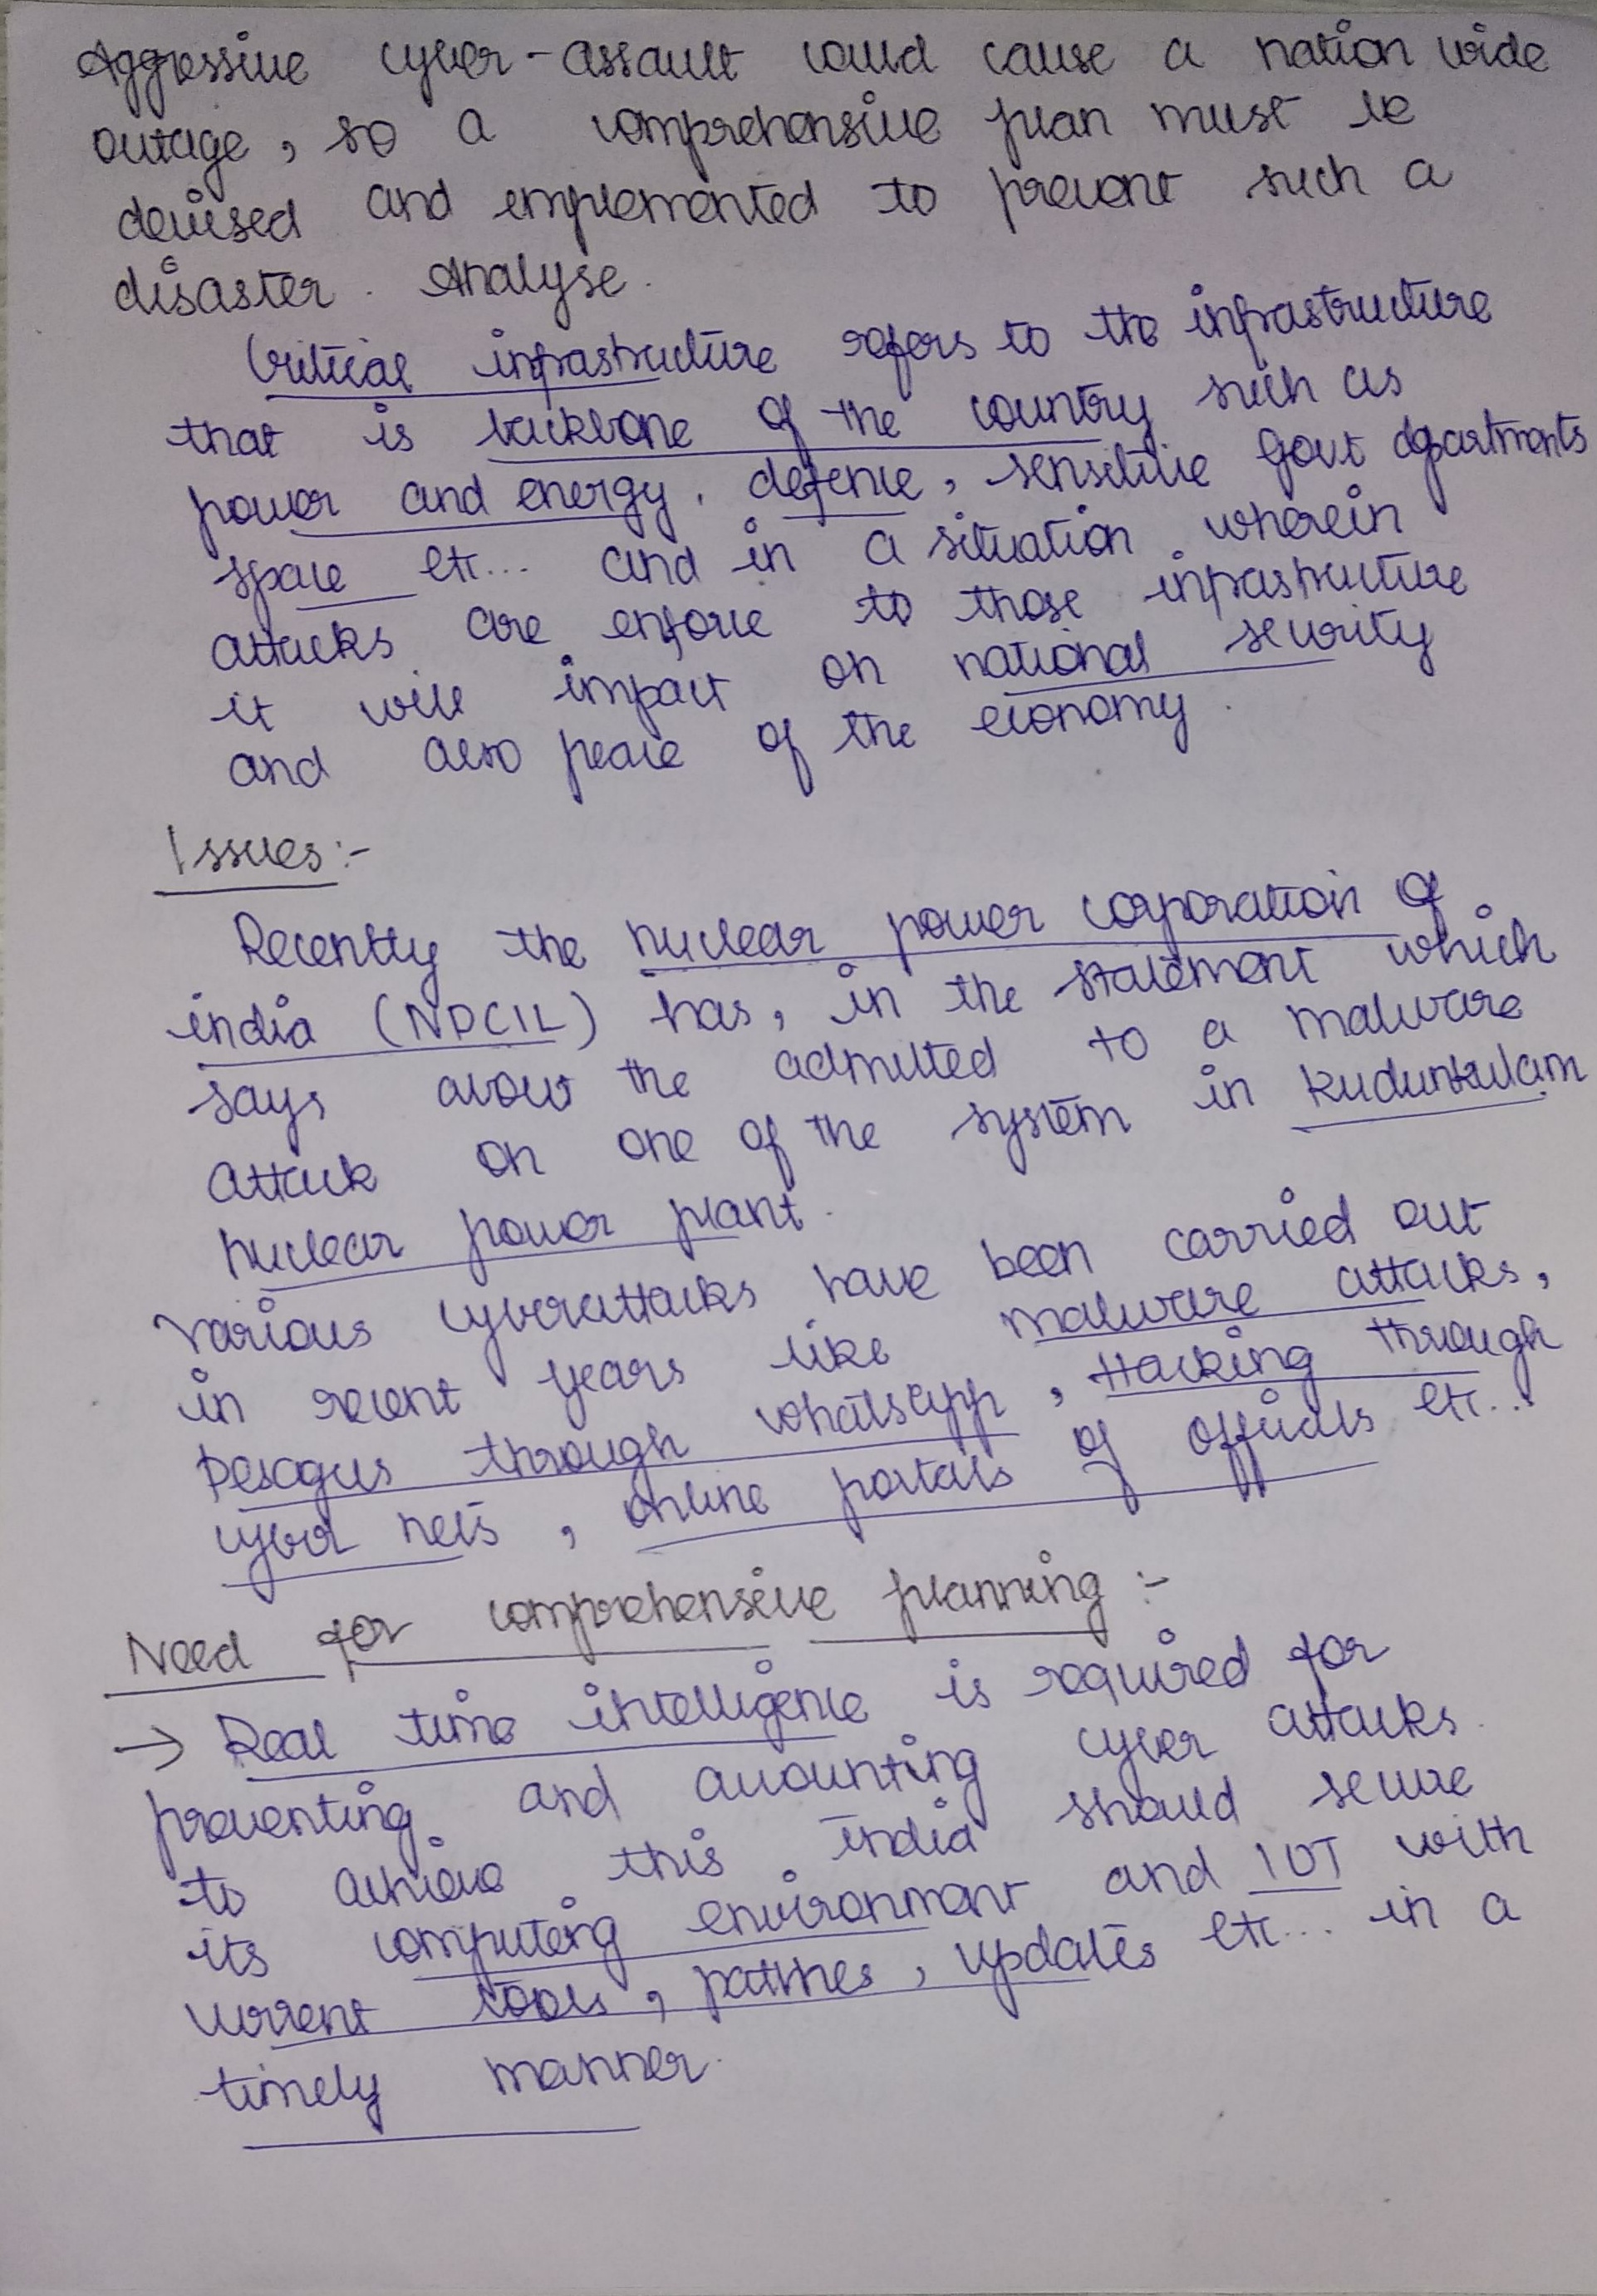 Aggressive cyber-assault could cause a nation wide
outage, so a comprehensive plan must be
devised and emplemented to prevent such a
disaster. Analyse.
Critical infrastructure refers to the infrastructure
that is backbone of the country such as
power and energy, defence, sensitive Govt departments
space etc... and in a situation wherein
attacks are enforce to those infrastructure
it will impact on national security
and also peace of the economy.
Issues:-
Recently the nuclear power corporation of
india (NPCIL) has, in the statement which
says about the admitted to a malware
attack on one of the system in kudunkulam
nuclear power plant.
Various cyberattacks have been carried out
in recent years like malware attacks,
Pesagus through whatsapp, Hacking through
cyber nets, online portals of officials etc...
Need for comprehensive planning:-
→ Real time intelligence is required for
preventing and accounting cyber attacks.
to achieve this, india should secure
its computing environment and IOT with
current tools, patches, updates etc... in a
timely manner.